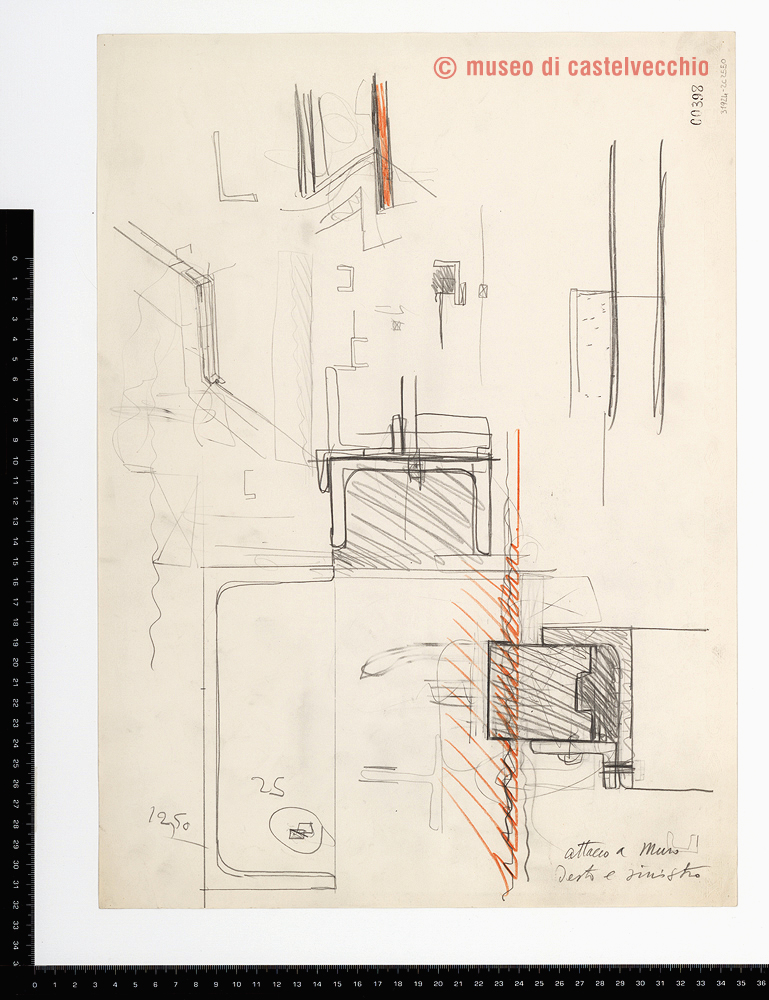 © museo di castelvecchio
00398
25
1250
attacco a Muro
Desto e sinistro
0
1
2
3
4
5
6
7
8
9
10
11
12
13
14
15
16
17
18
19
20
21
22
23
24
25
26
27
28
29
30
31
32
33
34
35
0 1 2 3 4 5 6 7 8 9 10 11 12 13 14 15 16 17 18 19 20 21 22 23 24 25 26 27 28 29 30 31 32 33 34 35 36